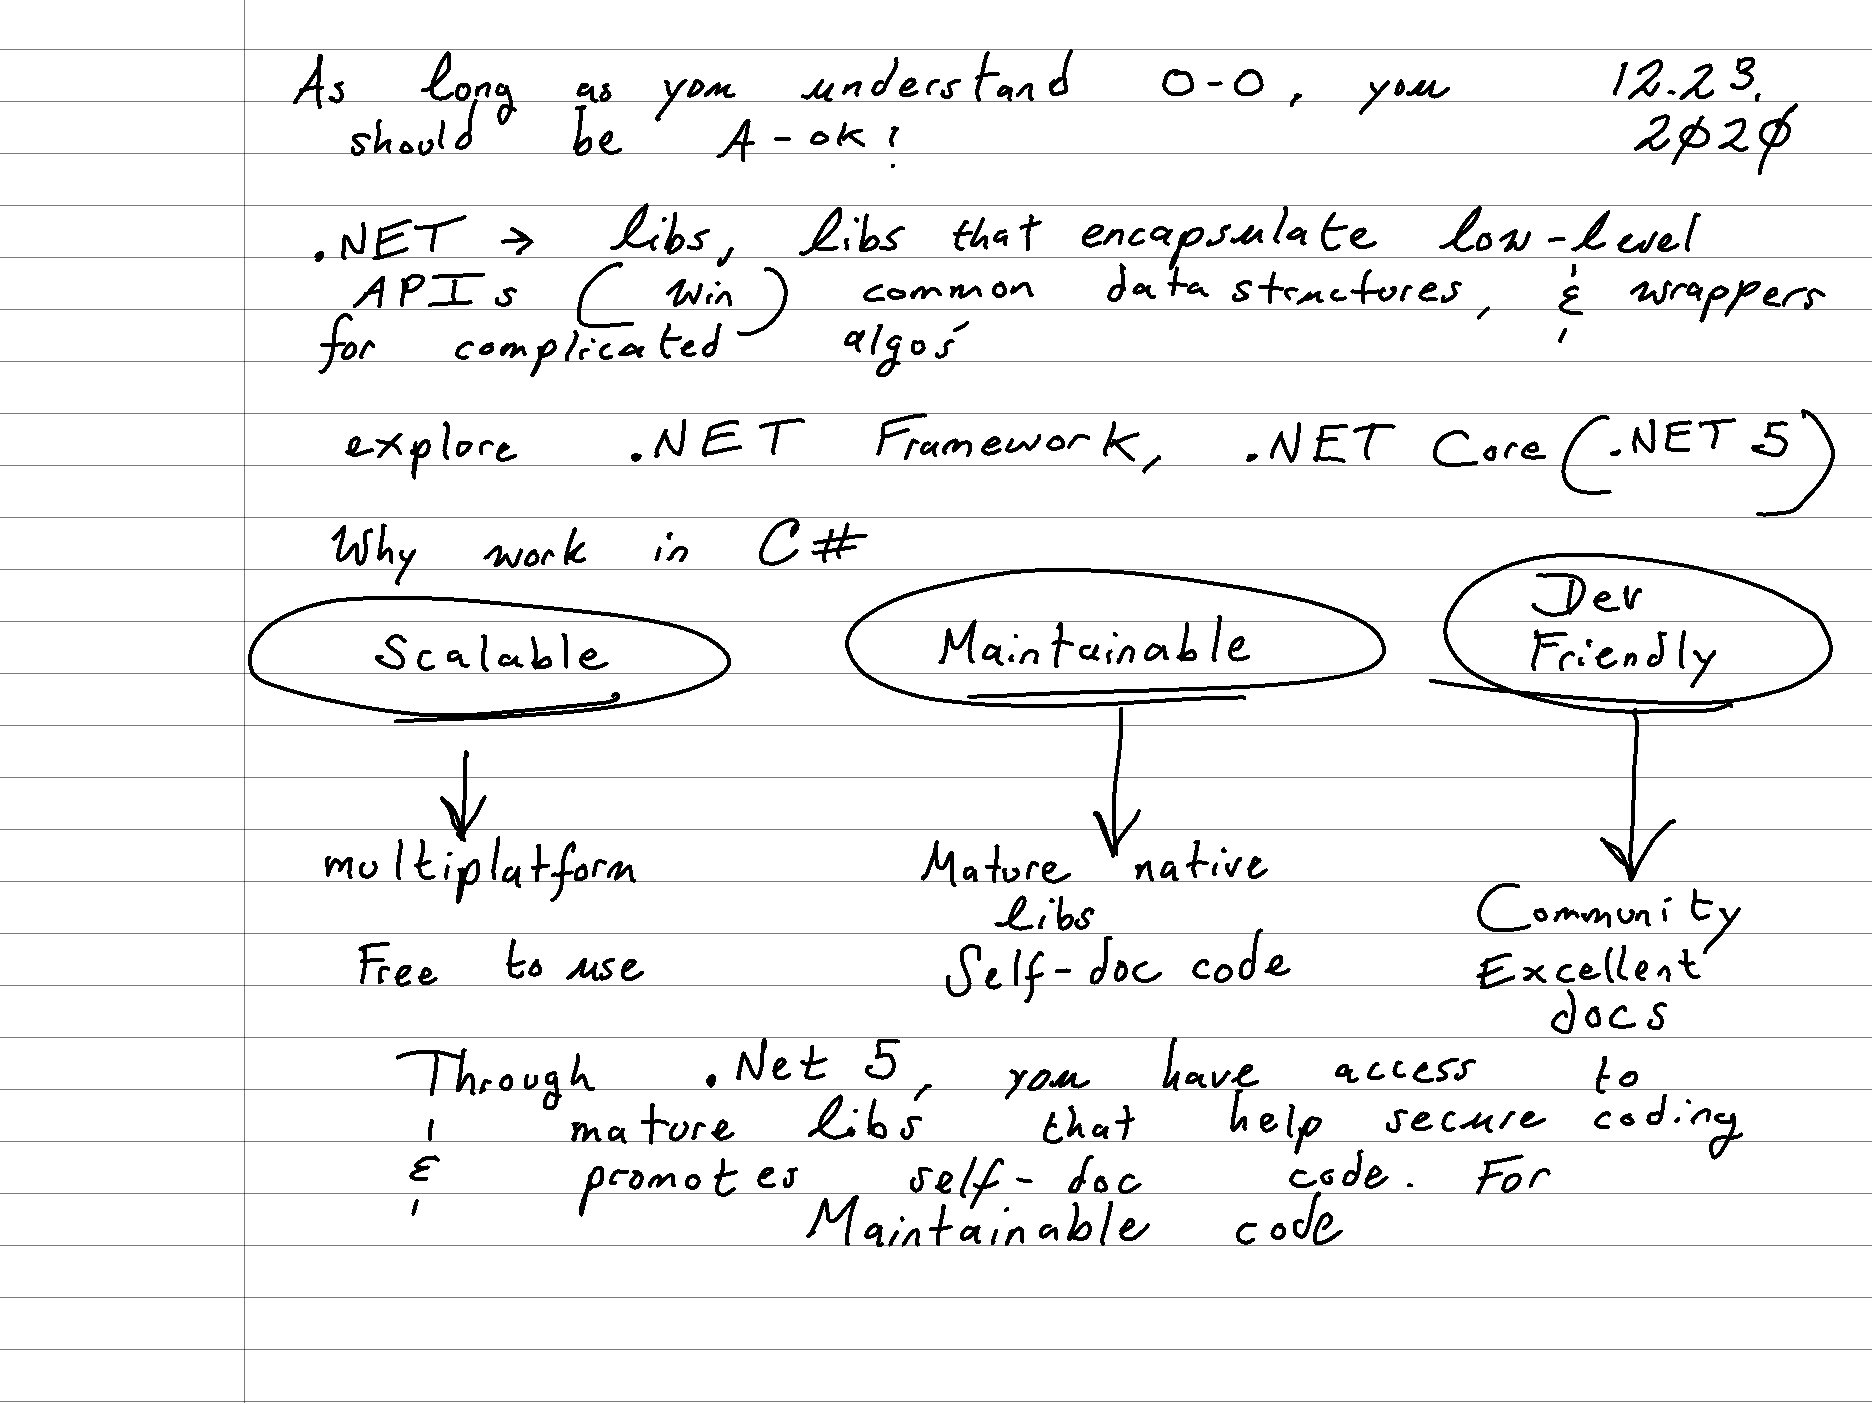 As long as you understand O-O, you 12.23.
should be A-ok! 2020
.NET → libs, libs that encapsulate low-level
APIs (Win) common data structures, & wrappers
for complicated algos
explore .NET Framework, .NET Core (.NET 5)
Why work in C#
Scalable Maintainable Dev
Friendly
multiplatform Mature native
libs Community
Free to use Self-doc code Excellent
docs
Through .Net 5, you have access to
mature libs that help secure coding
& promotes self-doc code. For
Maintainable code